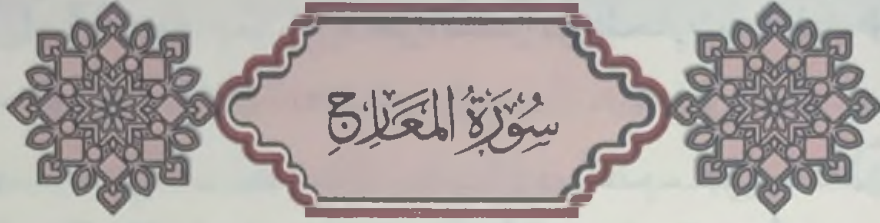 سُورَةُ المَعَارِجِ